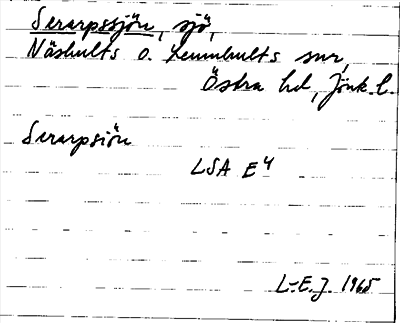 Serarpssjön, sjö,
Näshults o. Lemnhults snr,
Östra hd, Jönk. l.
Serarpsiön
LSA E4
L-E.J. 1965